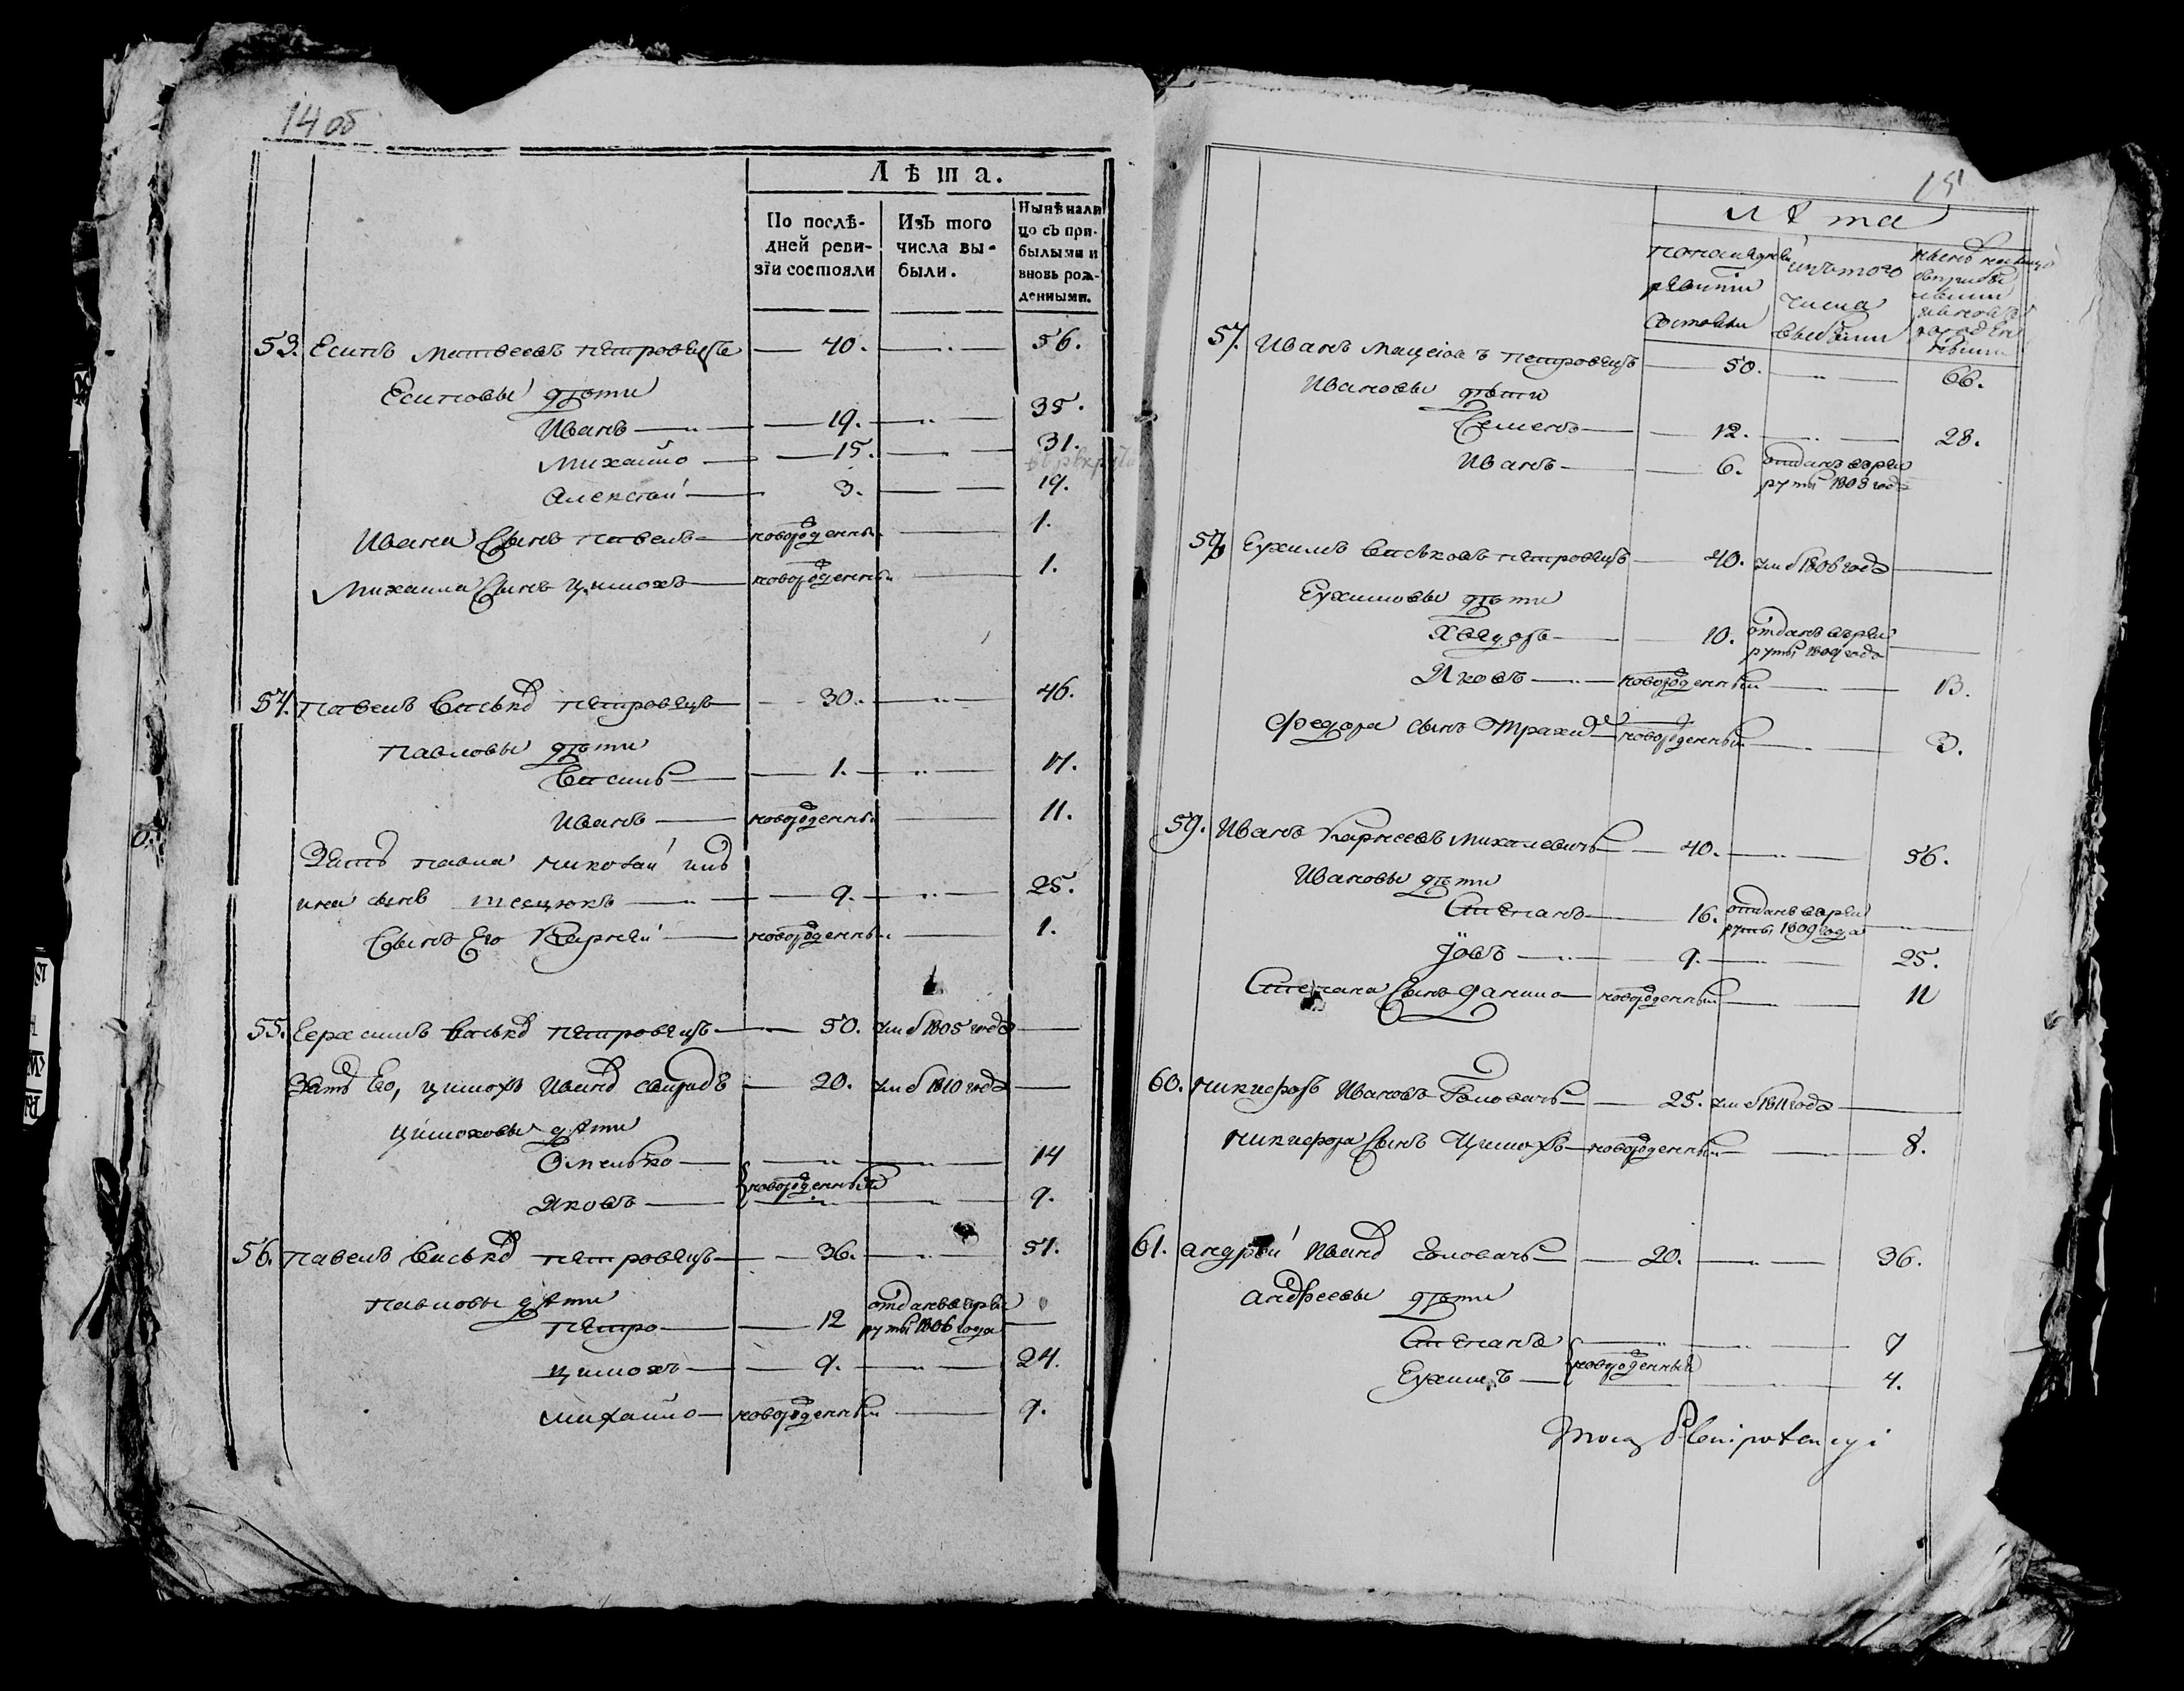 14 об
Лѣта.
По послѣ-
дней реви-
зіи состояли
Изъ того
числа вы-
были.
Нынѣ нали
цо съ при-
былыми и
вновь рож-
денными.
53. Есипъ Матвеевъ Петровецъ — 40. — 56.
Есиповы дѣти
Иванъ — 19. — 35.
Михайло — 15. — 31.
Алексѣй — 3. — 19.
Ивана Сынъ Павелъ — новорожденный — 1.
Михаила Сынъ Цимохъ — новорожденный — 1.
54. Павелъ Васьковъ Петровецъ — 30. — 46.
Павловы дѣти
Василь — 1. — 17.
Иванъ — новорожденный — 11.
Зять Павла Николай
сынъ — 9. — 25.
Сынъ Его Карней — новорожденный — 1.
55. Герасимъ Васьковъ Петровецъ — 50. умеръ 1805 года —
Зять Его, Цимохъ Ивановъ — 20. умеръ 1810 года —
Цимоховы дѣти
Омелько — 14
новорожденный
Яковъ — 9.
56. Павелъ Васьковъ Петровецъ — 36. — 51.
Павловы дѣти
Петро — 12 отданъ в рек
руты 1806 года —
Цимохъ — 9. — 24.
Михайло — новорожденный — 9.
15
Лѣта
По последней
ревизіи
состояли
изъ того
числа
выбыли
57. Иванъ Мацеіовъ Петровецъ — 50. — 66.
Ивановы дѣти
Семенъ — 12. — 28.
Иванъ — 6. отданъ в рек
руты 1808 года
58. Еухимъ Васьковъ Петровецъ — 40. умеръ 1806 года —
Еухимовы дѣти
Хведоръ — 10. отданъ в рек
руты 1809 года —
Яковъ — новорожденный — 13.
Федора сынъ Трахимъ — новорожденный — 3.
59. Иванъ Карнеевъ Михалевичъ — 40. — 56.
Ивановы дѣти
Степанъ — 16. отданъ в рек
руты 1809 года —
Іовъ — 9. — 25.
Степана Сынъ Данило — новорожденный — 11
60. Никифоръ Ивановъ Головачъ — 25. умеръ 1811 года —
Никифора Сынъ Цимохъ — новорожденный — 8.
61. Андрей Ивановъ Головачъ — 20. — 36.
Андреевы дѣти
Степанъ — 7
новорожденный
Еухимъ — 4.
Mocą Plenipotencyi